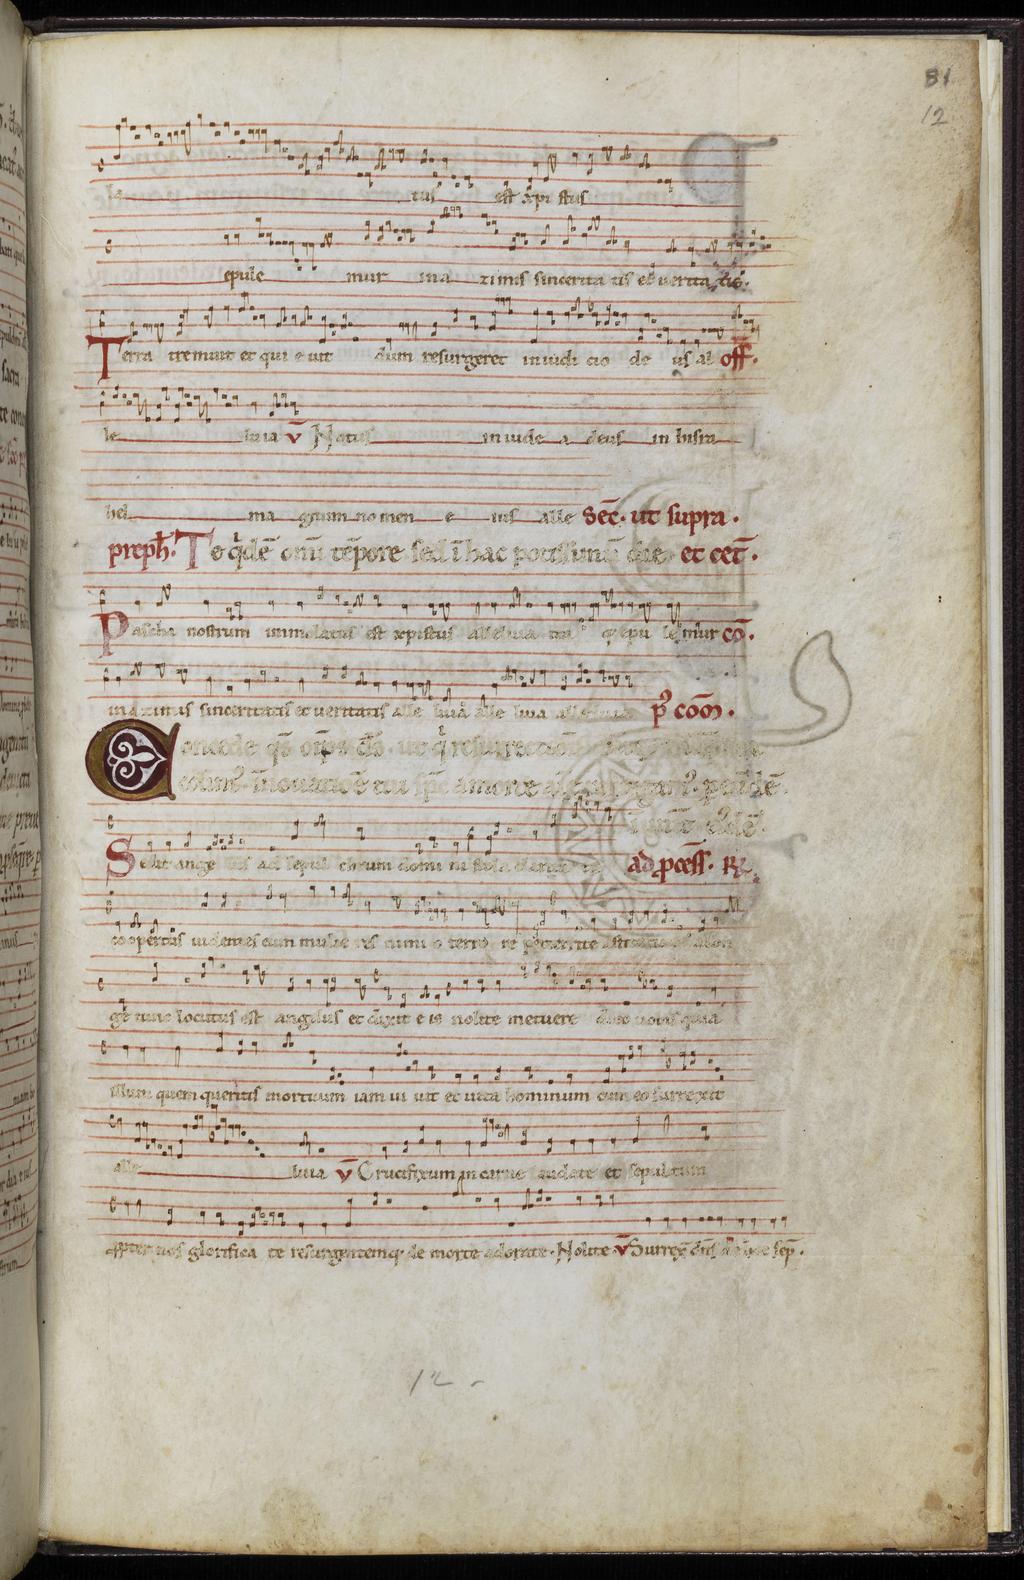 81
12
la tus est xpi stus
epule mur in a zimis sincerita tis et verita tis.
Terra tremuit et qui e uit dum resurgeret in iudi cio de us al off.
le luia ℣ Notus in iude a deus in hisra
hel ma gnum nomen e ius alle Sēc. ut supra.
preph. Te q̇dē om̄i tēpore sed ī hac potissimū die. et cet̄.
Pascha nostrum immolatus est xpistus alleluia ita q; epu le mur cō.
in a zimis sinceritatis et veritatis alle luia alle luia alleluia p᷑ com̄.
Concede qs om̄ps ds. ut q̇ resurrection
colim᷑. īnouatiōe tui sp̄c amorte
Sedit ange lus ad sepul chrum domi ni stola claritatis ad p̱cess̄. ℟
coopertus uidentes eum mulie res nimi o terro re perterrite
ge tunc locutus est angelus et dixit e is nolite metuere dico uobis quia
illum quem queritis mortuum iam ui uit et uita hominum cum eo surrexit
alle luia ℣ Crucifixum in carne laudate et sepultum
ppter uos glorifica te resurgentemq; de morte adorate. Nolite. ℣ Surrex̄ dn̄s de hoc sep̄.
12 -